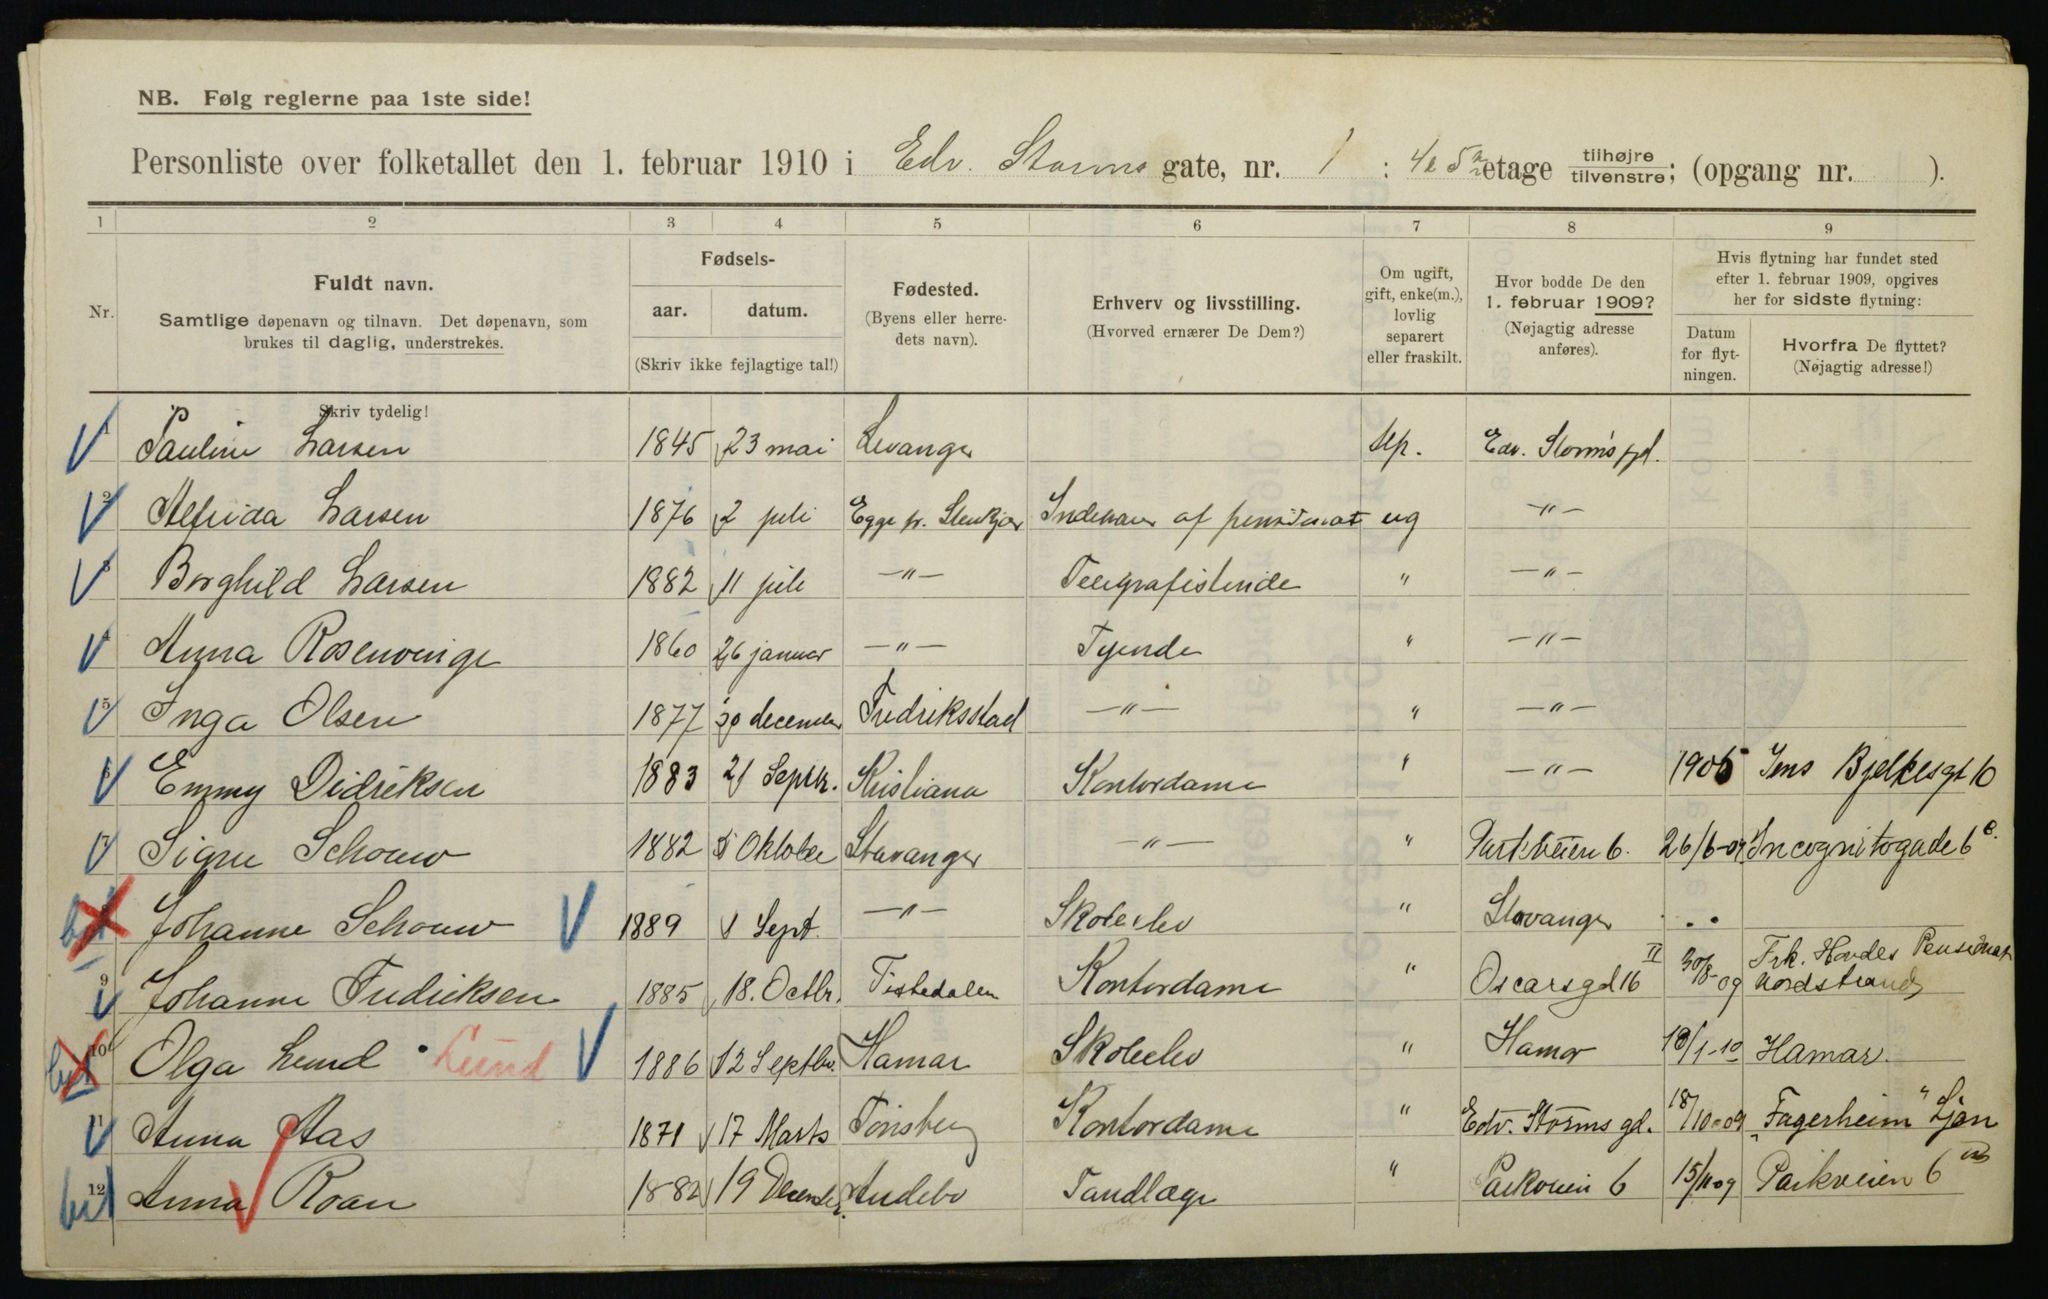 NB. Følg reglerne paa 1ste side!
Personliste over folketallet den 1. februar 1910 i Edv. Storms gate, nr. 1 : 4 & 5 etage tilhøjre tilvenstre; (opgang nr. ).
1 2 3 4 5 6 7 8 9
Nr.
Fuldt navn.
Samtlige døpenavn og tilnavn. Det døpenavn, som
brukes til daglig, understrekes.
Skriv tydelig!
Fødsels-
aar. datum.
(Skriv ikke fejlagtige tal!)
Fødested.
(Byens eller herre-
dets navn).
Erhverv og livsstilling.
(Hvorved ernærer De Dem?)
Om ugift,
gift, enke(m.),
lovlig
separert
eller fraskilt.
Hvor bodde De den
1. februar 1909?
(Nøjagtig adresse
anføres).
Hvis flytning har fundet sted
efter 1. februar 1909, opgives
her for sidste flytning:
Datum
for flyt-
ningen.
Hvorfra De flyttet?
(Nøjagtig adresse!)
1 Pauline Larsen 1845 23 mai Levanger sep. Edv. Storms gd.
2 Alfrida Larsen 1876 2 juli Egge pr. Stenkjær Indehaver af pensionat ug —"—
3 Borghild Larsen 1882 11 juli —"— Telegrafistinde " —"—
4 Anna Rosenvinge 1860 26 januar —"— Tjende " —"—
5 Inga Olsen 1877 30 december Fredriksstad —"— " —"—
6 Emmy Didriksen 1883 21 Septr. Kristiana Kontordame " —"— 1905 Jens Bjelkesgt 10
7 Signe Schouw 1882 5 Oktober Stavanger —"— " Parkveien 6. 26/6-09 Incognitogade 6 c.
8 Johanne Schouw 1889 1 Sept. —"— Skoleelev " Stavanger
9 Johanne Fredriksen 1885 18. Octbr. Tistedalen Kontordame " Oscarsgd 16 II 30/8-09 Frk. Hovdes Pensionat Nordstrand
10 Olga Lund Lund 1886 12 Septbr. Hamar Skoleelev " Hamar 10/1-10 Hamar.
11 Anna Aas 1871 17 Marts Tønsberg Kontordame " Edv. Storms gd. 18/10-09 "Fagerheim" Ljan
12 Anna Roan 1882 19 December Andebo Tandlæge " Parkveien 6 15/11 09 Parkveien 6